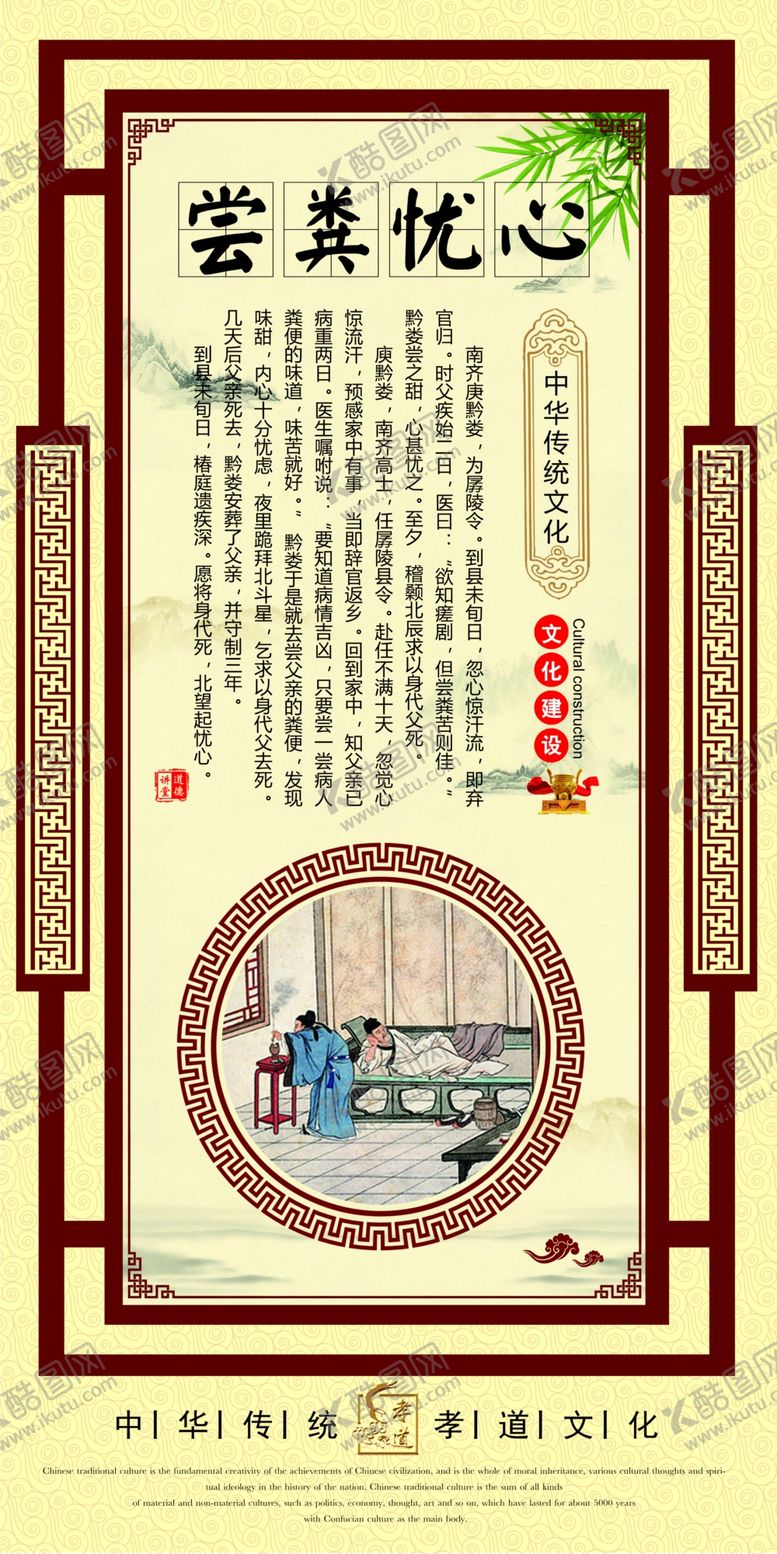 尝粪忧心
中华传统文化
Cultural construction
文化建设
南齐庾黔娄，为孱陵令。到县未旬日，忽心惊汗流，即弃
官归。时父疾始二日，医曰：“欲知瘥剧，但尝粪苦则佳。”
黔娄尝之甜，心甚忧之。至夕，稽颡北辰求以身代父死。
庾黔娄，南齐高士，任孱陵县令。赴任不满十天，忽觉心
惊流汗，预感家中有事，当即辞官返乡。回到家中，知父亲已
病重两日。医生嘱咐说：“要知道病情吉凶，只要尝一尝病人
粪便的味道，味苦就好。”黔娄于是就去尝父亲的粪便，发现
味甜，内心十分忧虑，夜里跪拜北斗星，乞求以身代父去死。
几天后父亲死去，黔娄安葬了父亲，并守制三年。
到县未旬日，椿庭遗疾深。愿将身代死，北望起忧心。
道德
讲堂
中|华|传|统 孝道 孝|道|文|化
Chinese traditional culture is the fundamental creativity of the achievements of Chinese civilization, and is the whole of moral inheritance, various cultural thoughts and spiri-
tual ideology in the history of the nation. Chinese traditional culture is the sum of all kinds
of material and non-material cultures, such as politics, economy, thought, art and so on, which have lasted for about 5000 years
with Confucian culture as the main body.
酷图网
www.ikutu.com